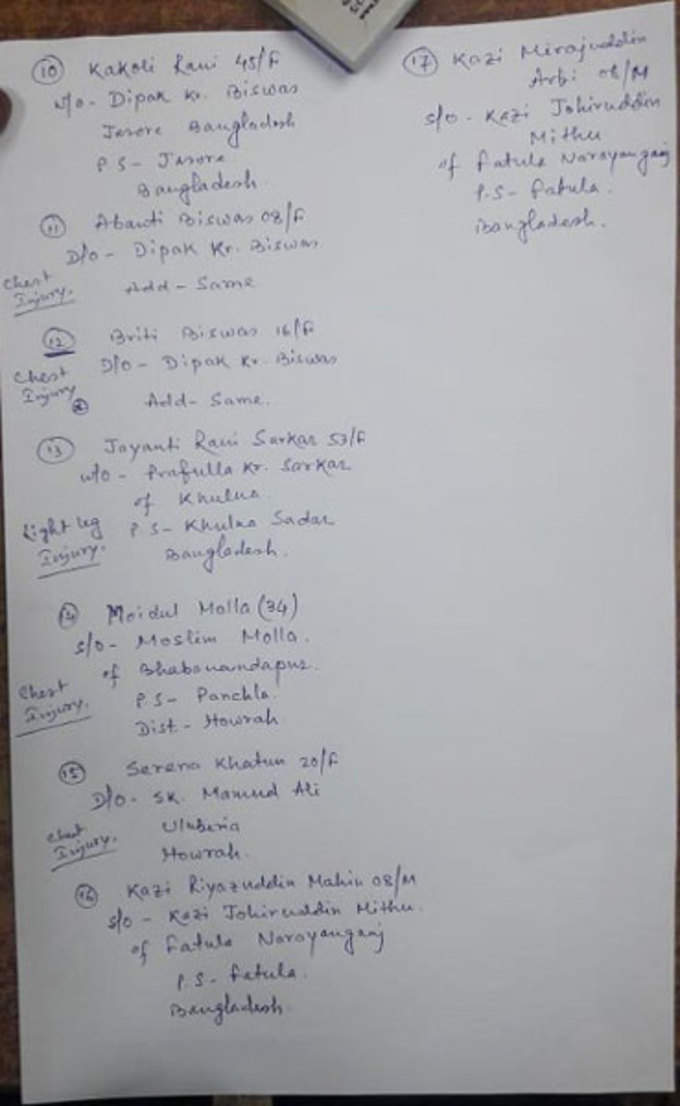 10 Kakoli Rani 45/F
W/o - Dipak Kr. Biswas
Jasore Bangladesh
P S - Jasore
Bangladesh.
11 Abanti Biswas 08/F
D/o - Dipak Kr. Biswas
Chest
Injury.
Add - Same
12 Briti Biswas 16/F
D/o - Dipak Kr. Biswas
Chest
Injury
Add - Same.
13 Jayanti Rani Sarkar 53/F
W/o - Prafulla Kr. Sarkar
of Khulna
Right leg
Injury.
P.S - Khulna Sadar
Bangladesh.
14 Moidul Molla (34)
S/o - Moslim Molla.
of Bhabanandapur.
Chest
Injury.
P.S - Panchla.
Dist - Howrah
15 Serena Khatun 20/F
D/o - SK. Mamud Ali
Chest
Injury.
Uluberia
Howrah.
16 Kazi Riyazuddin Mahin 08/M
S/o - Kazi Johiruddin Mithu.
of Fatula Narayanganj
P.S - Fatula.
Bangladesh.
17 Kazi Mirajuddin
Arbi 08/M
S/o - Kazi Johiruddin
Mithu
of Fatula Narayanganj
P.S - Fatula.
Bangladesh.